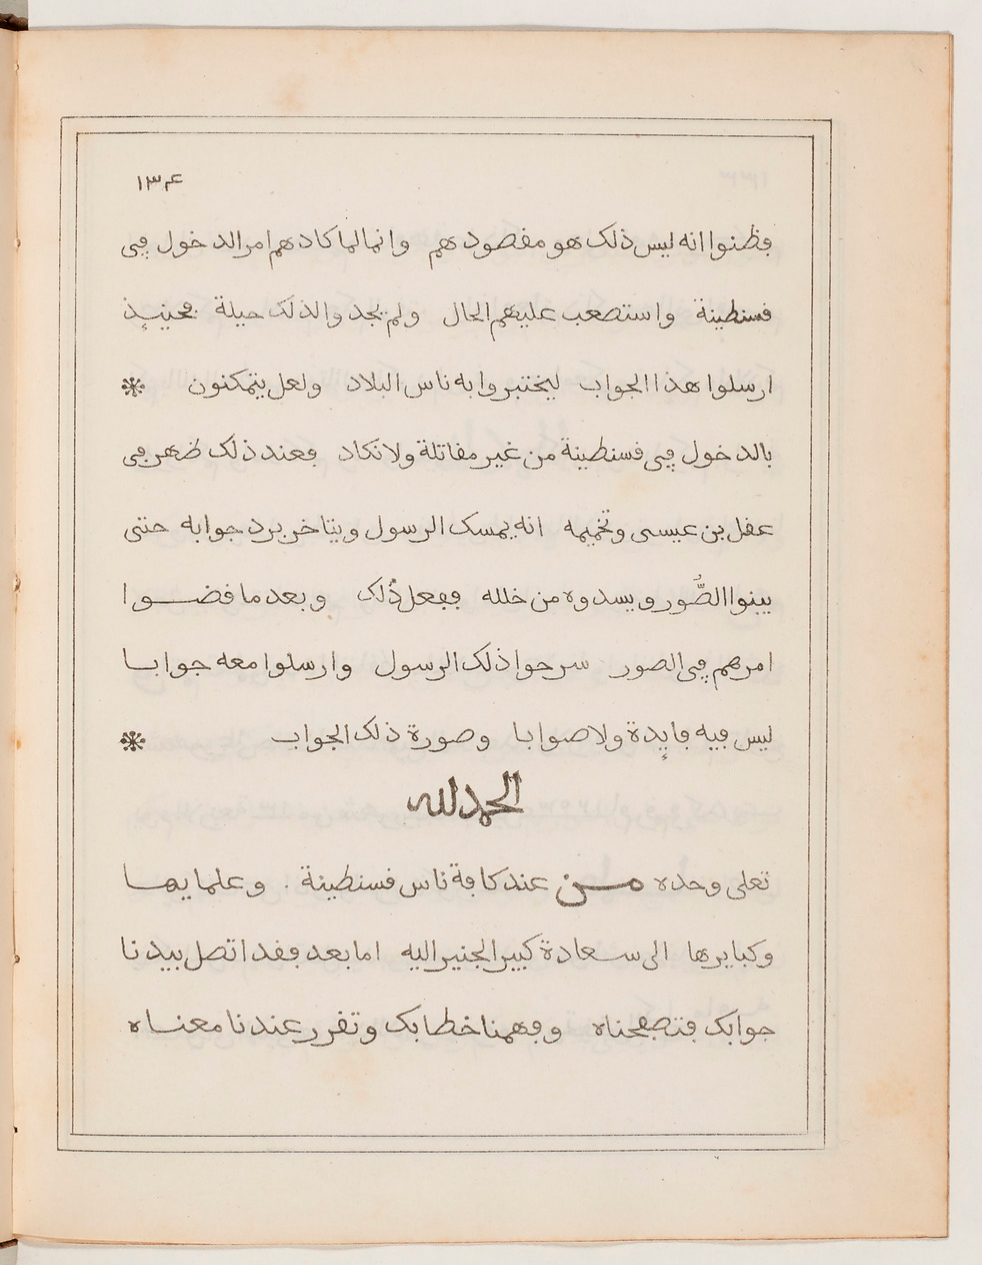 ١٣٤
فظنوا انه ليس ذلك هو مقصودهم وانما لما كادهم امر الدخول في
قسنطينة واستصعب عليهم الحال ولم يجدوا لذلك حيلة فحينيذ
ارسلوا هذا الجواب ليختبروا به ناس البلاد ولعل يتمكنون *
بالدخول في قسنطينة من غير مقاتلة ولا نكاد فعند ذلك ظهر في
عقل بن عيسى وتخميمه انه يمسك الرسول ويتاخر برد جوابه حتى
يبنوا الصُّور ويسدوه من خلله ففعل ذُلك وبعد ما قضوا
امرهم في الصور سرحوا ذلك الرسول وارسلوا معه جوابا
ليس فيه فايدة ولا صوابا وصورة ذلك الجواب *
الحمد لله
تعلى وحده من عند كافة ناس قسنطينة . وعلمايها
وكبايرها الى سعادة كبير الجنيراليه اما بعد فقد اتصل بيدنا
جوابك فتصفحناه وفهمنا خطابك وتقرر عندنا معناه